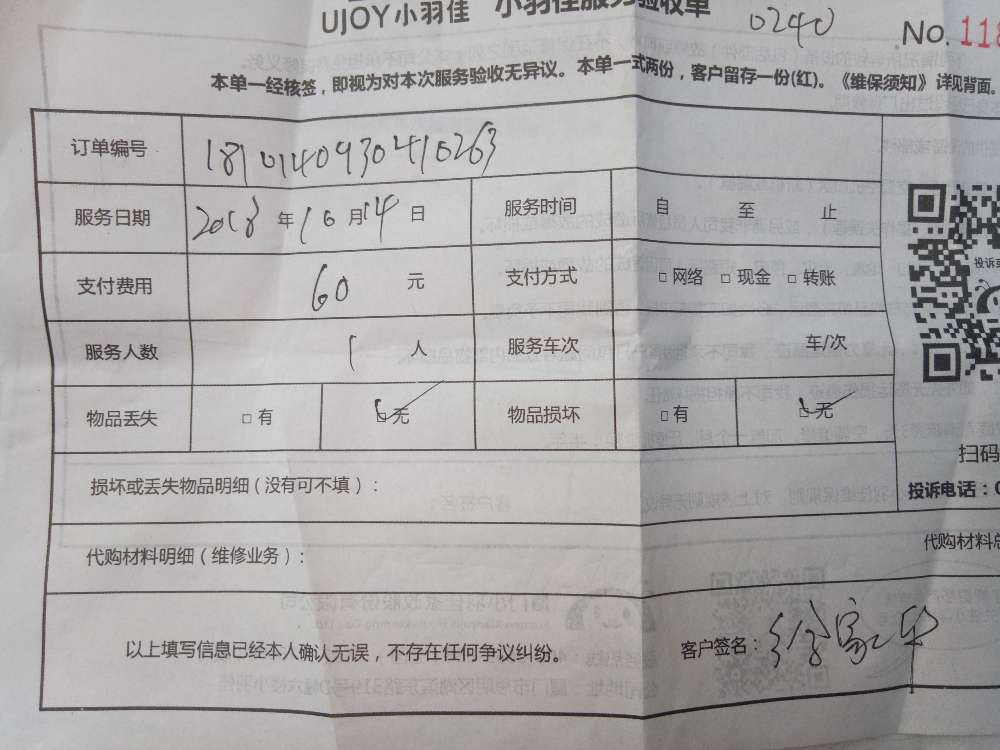 UJOY小羽佳 小羽佳服务验收单 0240 No. 118
本单一经核签，即视为对本次服务验收无异议。本单一式两份，客户留存一份(红)。《维保须知》详见背面。
订单编号 1810140930410263
服务日期 2018 年 10 月 14 日 服务时间 自 至 止
支付费用 60 元 支付方式 □ 网络 □ 现金 □ 转账
投诉
服务人数 1 人 服务车次 车/次
物品丢失 □ 有 ☑ 无 物品损坏 □ 有 ☑ 无
扫码
损坏或丢失物品明细（没有可不填）：
投诉电话：0
代购材料明细（维修业务）： 代购材料总
以上填写信息已经本人确认无误，不存在任何争议纠纷。 客户签名：徐家华